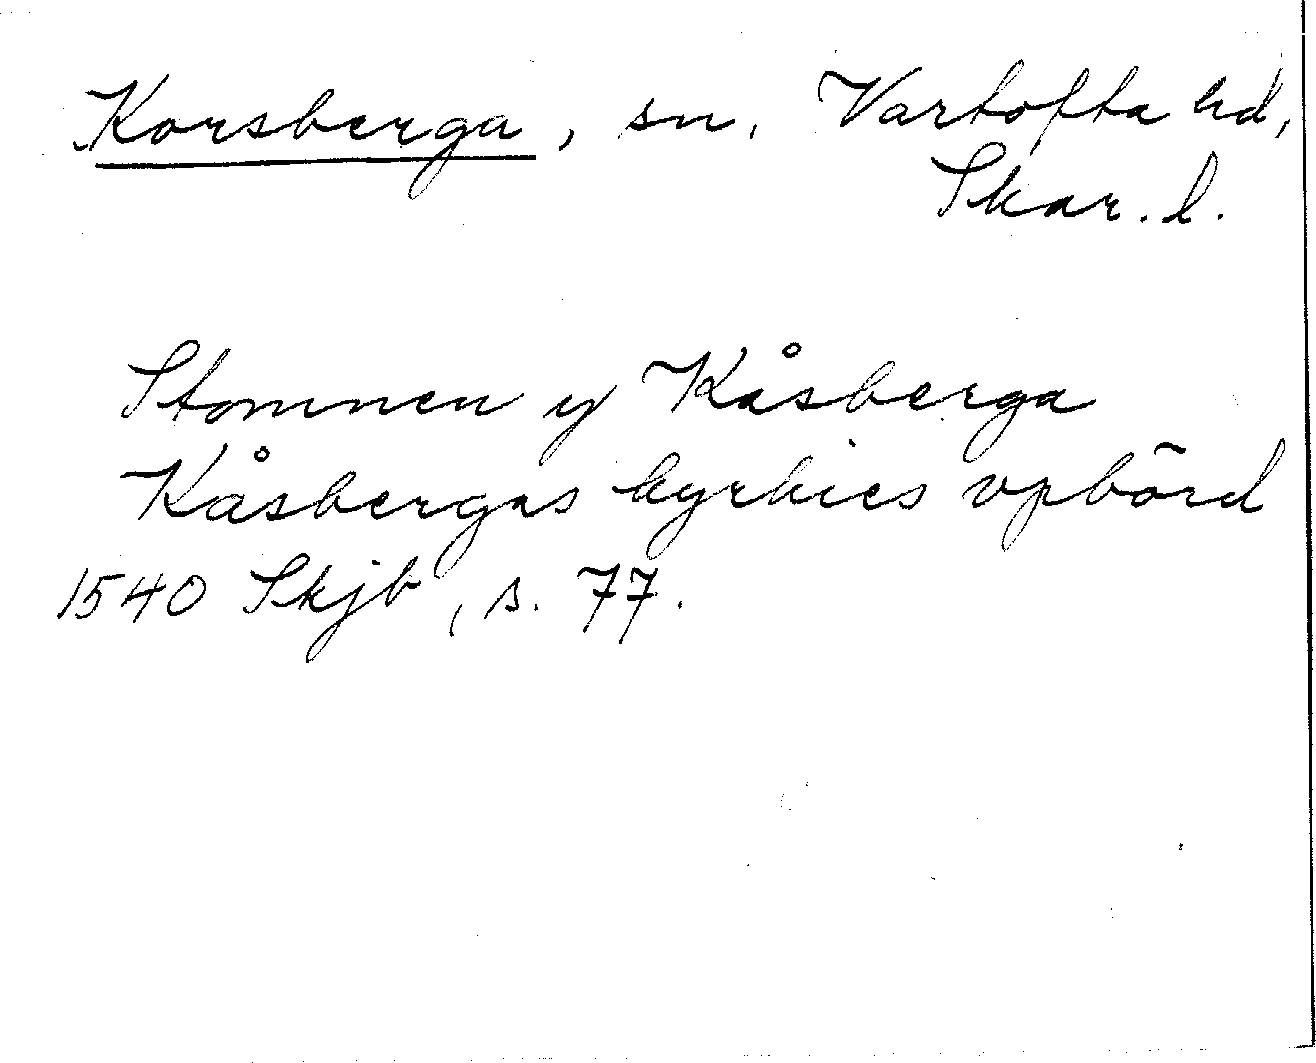 Korsberga, sn. Vartofta hd,
Skar. l.
Stommen y Kåsberga
Kåsbergas kyrkies vpbörd
1540 Skjb, s. 77.